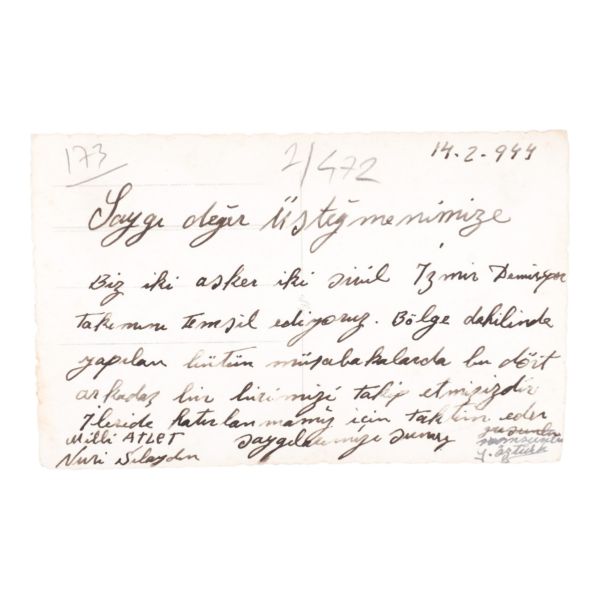 173
2/472
14.2.944
Saygı değer Üsteğmenimize
Biz iki asker iki sivil İzmir Demirspor
takımını temsil ediyoruz. Bölge dahilinde
yapılan bütün müsabakalarda bu dört
arkadaş bir birimizi takip etmişizdir
İleride hatırlanmamız için taktim eder
saygılarımızı sunarız
Milli ATLET
Nuri
Y. Öztürk